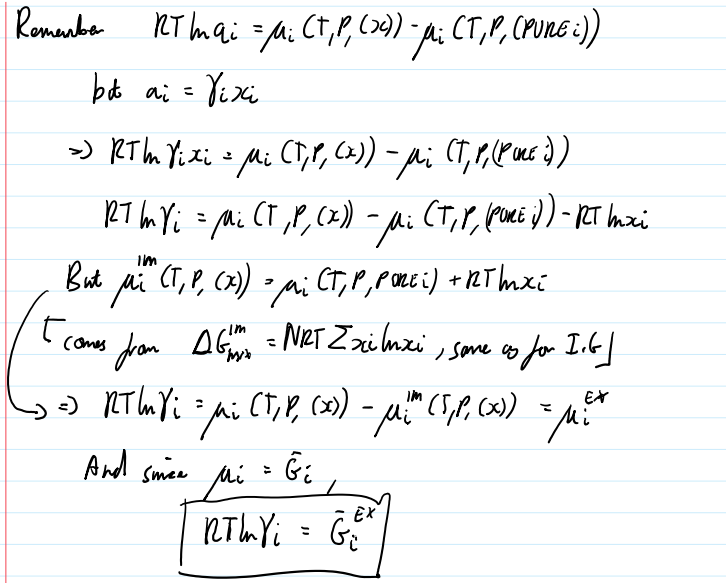 Remember RT ln aᵢ = μᵢ (T,P,(x)) - μᵢ (T,P,(PURE i))
but aᵢ = γᵢxᵢ
=> RT ln γᵢxᵢ = μᵢ (T,P,(x)) - μᵢ (T,P,(PURE i))
RT ln γᵢ = μᵢ (T,P,(x)) - μᵢ (T,P,(PURE i)) - RT ln xᵢ
But μᵢ^IM (T,P,(x)) = μᵢ (T,P,PURE i) + RT ln xᵢ
[comes from ΔG_mix^IM = NRT Σ xᵢ ln xᵢ, same as for I.G]
=> RT ln γᵢ = μᵢ (T,P,(x)) - μᵢ^IM (T,P,(x)) = μᵢ^EX
And since μᵢ = Ḡᵢ,
RT ln γᵢ = Ḡᵢ^EX